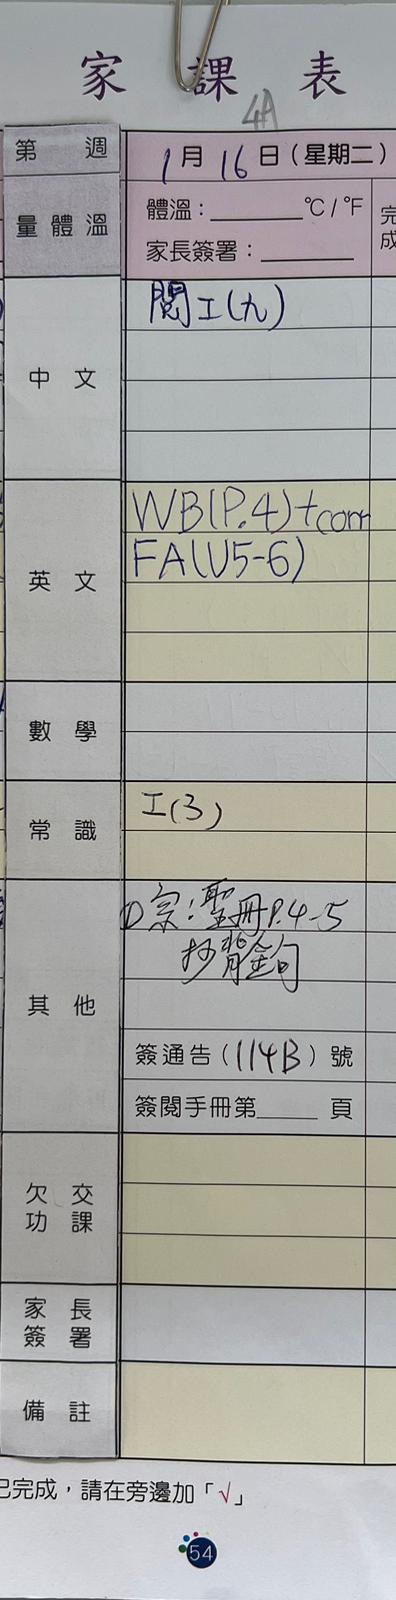 家課表
4A
第 週
1月16日(星期二)
量體溫
體溫：______℃/℉
家長簽署：______
完成
中文
閱工(九)
英文
WB(P.4)+corr
FA(U5-6)
數學
常識
工(3)
其他
①宗：聖冊P.4-5
抄背金句
簽通告(114B)號
簽閱手冊第____頁
欠交功課
家長簽署
備註
已完成，請在旁邊加「√」
54